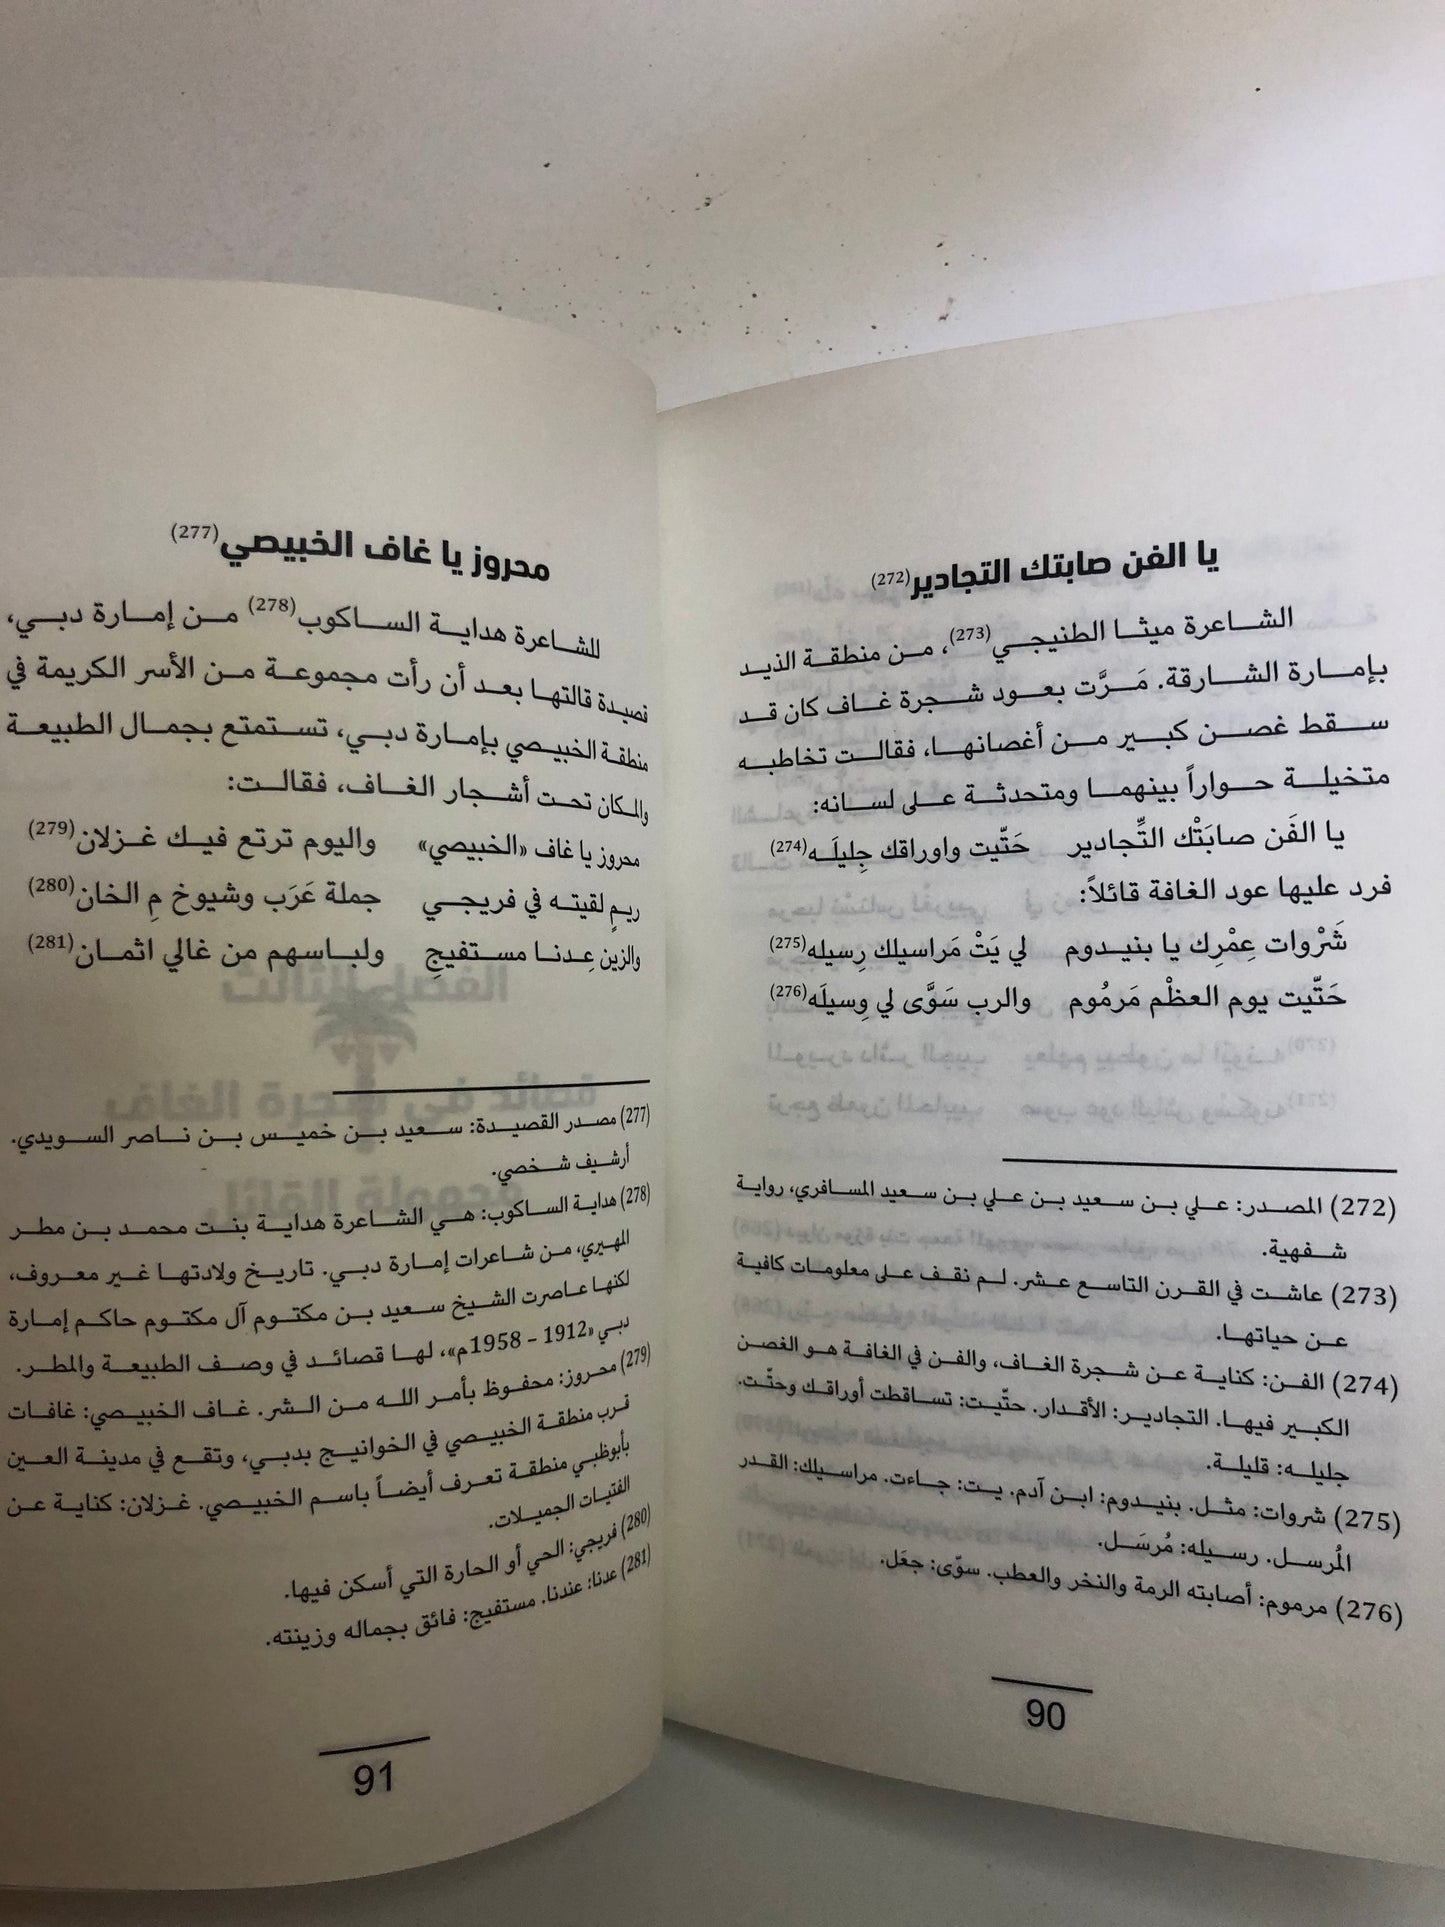 يا الفن صابتك التجادير(272)
الشاعرة ميثا الطنيجي(273)، من منطقة الذيد
بإمارة الشارقة. مَرَّت بعود شجرة غاف كان قد
سقط غصن كبير من أغصانها، فقالت تخاطبه
متخيلة حواراً بينهما ومتحدثة على لسانه:
يا الفَن صابَتْك التِّجادير حَتّيت واوراقك جِليلَه(274)
فرد عليها عود الغافة قائلاً:
شَرْوات عِمْرِك يا بنيدوم لي يَتْ مَراسيلك رِسيله(275)
حَتّيت يوم العظْم مَرمُوم والرب سَوَّى لي وِسيلَه(276)
(272) المصدر: علي بن سعيد بن علي بن سعيد المسافري، رواية
شفهية.
(273) عاشت في القرن التاسع عشر. لم نقف على معلومات كافية
عن حياتها.
(274) الفن: كناية عن شجرة الغاف، والفن في الغافة هو الغصن
الكبير فيها. التجادير: الأقدار. حتّيت: تساقطت أوراقك وحتّت.
جليله: قليلة.
(275) شروات: مثل. بنيدوم: ابن آدم. يت: جاءت. مراسيلك: القدر
المُرسل. رسيله: مُرسَل.
(276) مرموم: أصابته الرمة والنخر والعطب. سوّى: جعَل.
90
محروز يا غاف الخبيصي(277)
للشاعرة هداية الساكوب(278) من إمارة دبي،
قصيدة قالتها بعد أن رأت مجموعة من الأسر الكريمة في
منطقة الخبيصي بإمارة دبي، تستمتع بجمال الطبيعة
والمكان تحت أشجار الغاف، فقالت:
محروز يا غاف «الخبيصي» واليوم ترتع فيك غزلان(279)
ريمٍ لقيته في فريجي جملة عَرَب وشيوخ مِ الخان(280)
والزين عِدنا مستفيجِ ولباسهم من غالي اثمان(281)
(277) مصدر القصيدة: سعيد بن خميس بن ناصر السويدي.
أرشيف شخصي.
(278) هداية الساكوب: هي الشاعرة هداية بنت محمد بن مطر
المهيري، من شاعرات إمارة دبي. تاريخ ولادتها غير معروف،
لكنها عاصرت الشيخ سعيد بن مكتوم آل مكتوم حاكم إمارة
دبي «1912 - 1958م»، لها قصائد في وصف الطبيعة والمطر.
(279) محروز: محفوظ بأمر الله من الشر. غاف الخبيصي: غافات
قرب منطقة الخبيصي في الخوانيج بدبي، وتقع في مدينة العين
بأبوظبي منطقة تعرف أيضاً باسم الخبيصي. غزلان: كناية عن
الفتيات الجميلات.
(280) فريجي: الحي أو الحارة التي أسكن فيها.
(281) عدنا: عندنا. مستفيج: فائق بجماله وزينته.
91